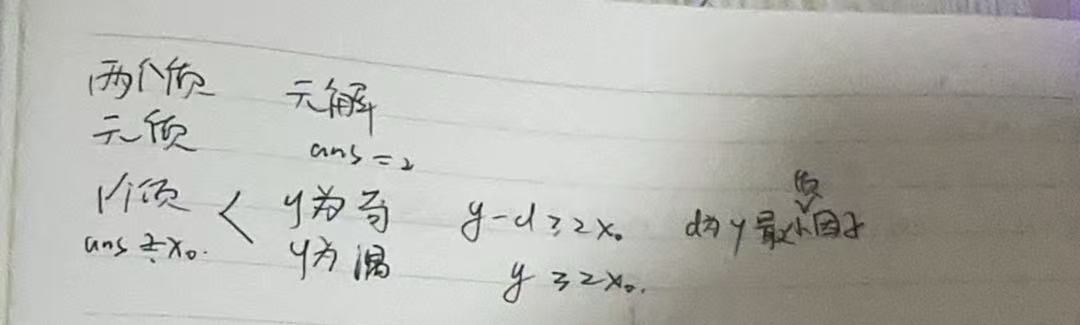 两个质 无解
无质 ans=2
1个质 < y为奇 y-d≥2x₀ d为y最小质因子
ans≥x₀. y为偶 y≥2x₀.